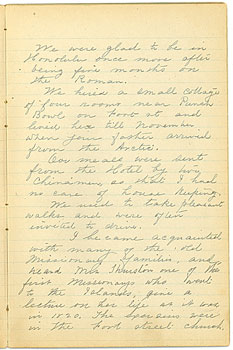 We were glad to be in
Honolulu once more after
being five months on
the Roman.
We hired a small cottage
of four rooms near Punch
Bowl on Fort st and
lived here till November
when your father arrived
from the Arctic.
Our meals were sent
from the Hotel by two
Chinamen, so that I had
no care of house keeping.
We used to take pleasant
walks and were often
invited to drive.
I became acquainted
with many of the old
Missionary families, and
heard Mrs Thurston one of the
first Missionarys who went
to the Islands, give a
lecture on her life as it was
in 1820. The exercises were
in the Fort street church,